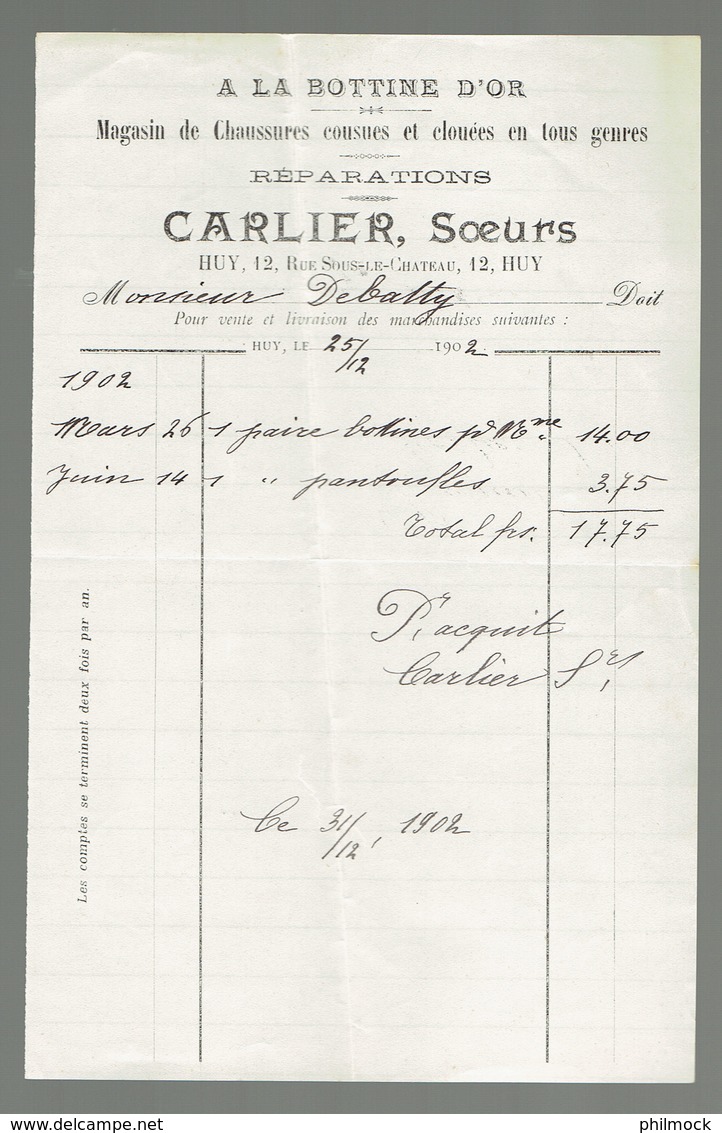 A LA BOTTINE D'OR
Magasin de Chaussures cousues et clouées en tous genres
RÉPARATIONS
CARLIER, Sœurs
HUY, 12, RUE SOUS-LE-CHATEAU, 12, HUY
Monsieur Debatty Doit
Pour vente et livraison des marchandises suivantes :
HUY, LE 25/12 1902
1902
Mars 26 1 paire bottines pr Mme 14.00
Juin 14 1 " pantoufles 3.75
Total frs. 17.75
Pr acquit
Carlier Srs
Ce 31/12, 1902
Les comptes se terminent deux fois par an.
philmock